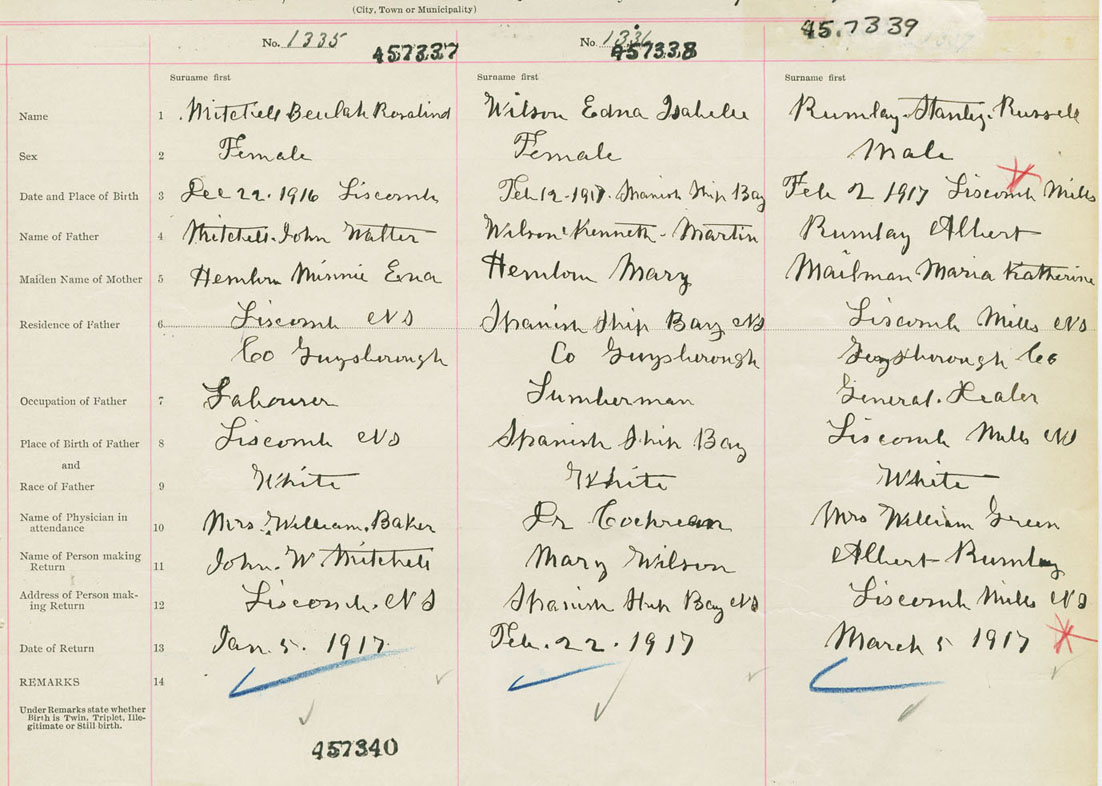 (City, Town or Municipality)
No. 1335 457337 No. 1336 457338 457339
Surname first Surname first Surname first
Name 1 Mitchell Beulah Rosalind Wilson Edna Isabelle Rumley Stanley Russell
Sex 2 Female Female Male
Date and Place of Birth 3 Dec 22. 1916 Liscomb Feb 12-1917. Spanish Ship Bay Feb 2 1917 Liscomb Mills
Name of Father 4 Mitchell John Walter Wilson Kenneth Martin Rumley Albert
Maiden Name of Mother 5 Hemlow Minnie Ena Hemlow Mary Mailman Maria Katherine
Residence of Father 6 Liscomb NS Spanish Ship Bay NS Liscomb Mills NS
Co Guysborough Co Guysborough Guysborough Co
Occupation of Father 7 Labourer Lumberman General Dealer
Place of Birth of Father 8 Liscomb NS Spanish Ship Bay Liscomb Mills NS
and
Race of Father 9 White White White
Name of Physician in
attendance 10 Mrs. William. Baker Dr Cochrean Mrs William Green
Name of Person making
Return 11 John. W Mitchell Mary Wilson Albert Rumley
Address of Person mak-
ing Return 12 Liscomb. NS Spanish Ship Bay NS Liscomb Mills NS
Date of Return 13 Jan. 5. 1917. Feb. 22. 1917 March 5 1917
REMARKS 14
Under Remarks state whether
Birth is Twin, Triplet, Ille-
gitimate or Still birth.
457340